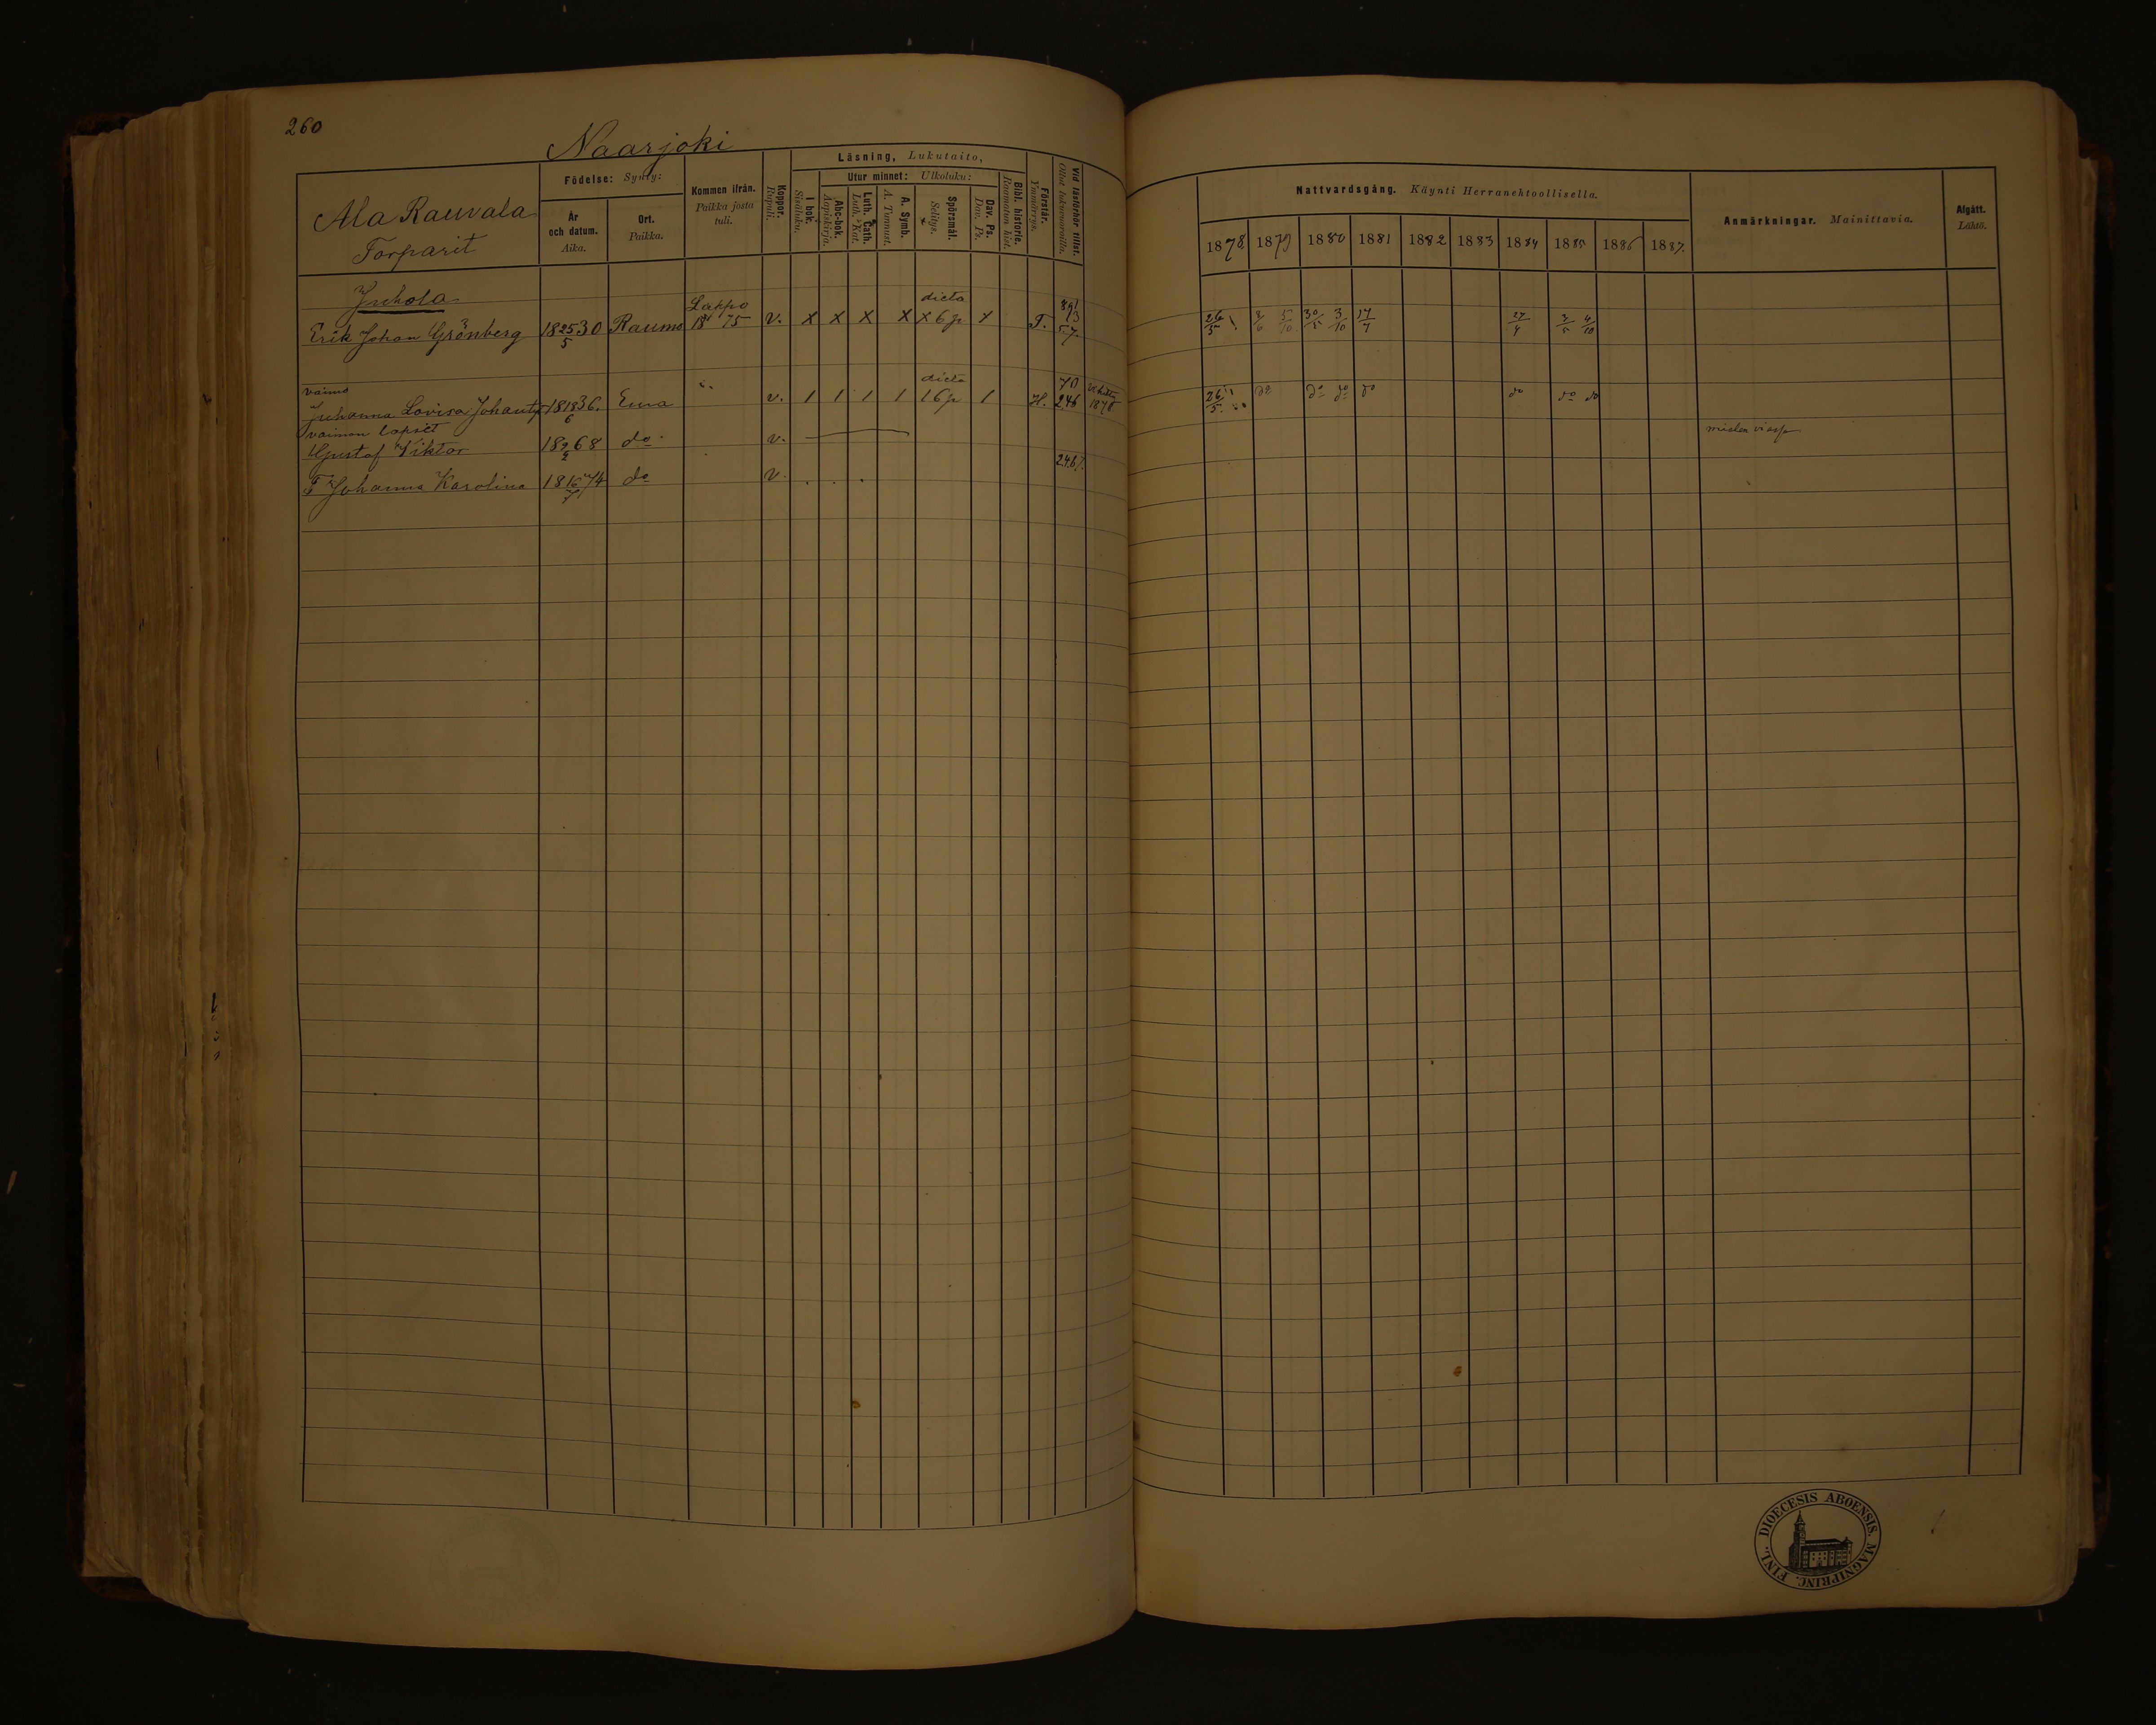 260
Naarjoki
Ala Rauvala
Torparit
Födelse: Synty:
År och datum. Aika.
Ort. Paikka.
Kommen ifrån. Paikka josta tuli.
Koppor. Rupuli.
Läsning, Lukutaito,
I bok. Sisäluku.
Utur minnet: Ulkoluku:
Abc-bok. Aapiskirja.
Luth. Cath. Luth. Kat.
A. Symb. A. Tunnust.
Spörsmål. Selitys.
Dav. Ps. Dav. Ps.
Bibl. historie. Raamatun hist.
Förstår. Ymmärrys.
Vid läsförhör tillst. Ollut lukuvuorolla.
Nattvardsgång. Käynti Herranehtoollisella.
1878 1879 1880 1881 1882 1883 1884 1885 1886 1887.
Anmärkningar. Mainittavia.
Afgått. Lähtö.
Erik Johan Grönberg 18 25/5 30 Raumo Lappo 18 75 v. x x x x dicta x 6 p x T. 26/5 5/10 30/5 3/10 17/7 27/4 3/5 4/10
vaimo
Johanna Lovisa 18 18/6 36. Eura v. 1 1 1 1 dicta 1 6 p 1 H. 70 246 1878 26/5 do do do do do do do
vaimon lapset
Gustaf Viktor 18 2/2 68 do v.
Johanna Karolina 18 16/7 74 do v. 246
DIOECESIS ABOENSIS. MAGNIPRINC. FINL.